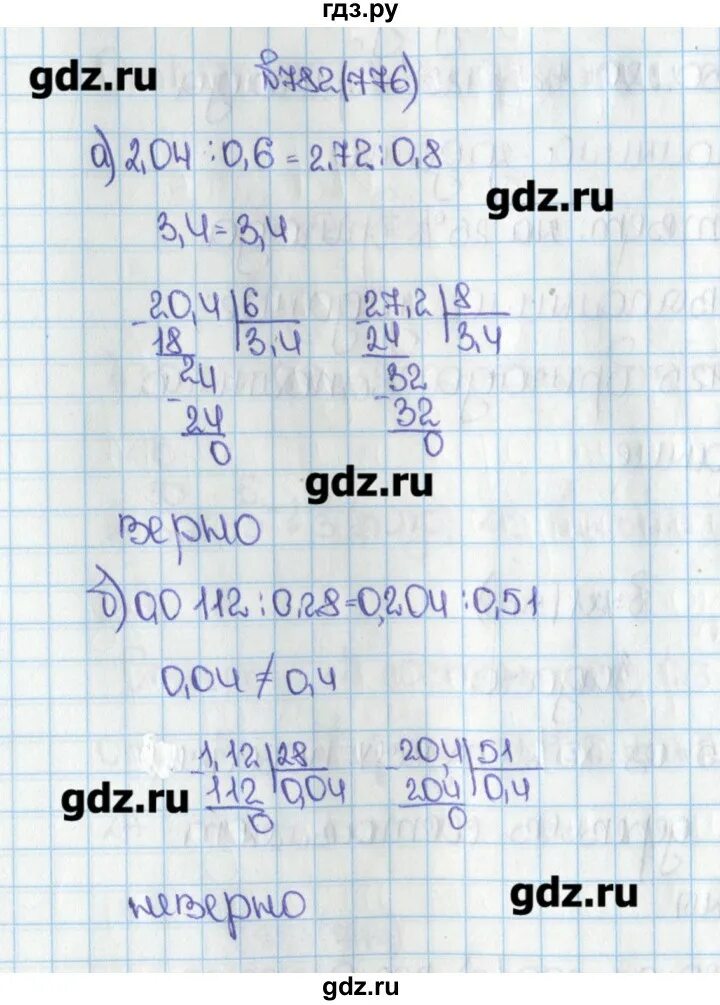 гдз.ру
gdz.ru
№782(776)
а) 2,04 : 0,6 = 2,72 : 0,8
gdz.ru
3,4 = 3,4
20,4 6 27,2 8
18 3,4 24 3,4
24 32
24 32
0 0
gdz.ru
верно
б) 0,0112 : 0,28 = 0,204 : 0,51
0,04 ≠ 0,4
1,12 28 20,4 51
gdz.ru 112 0,04 204 0,4
0 0
неверно
gdz.ru
gdz.ru